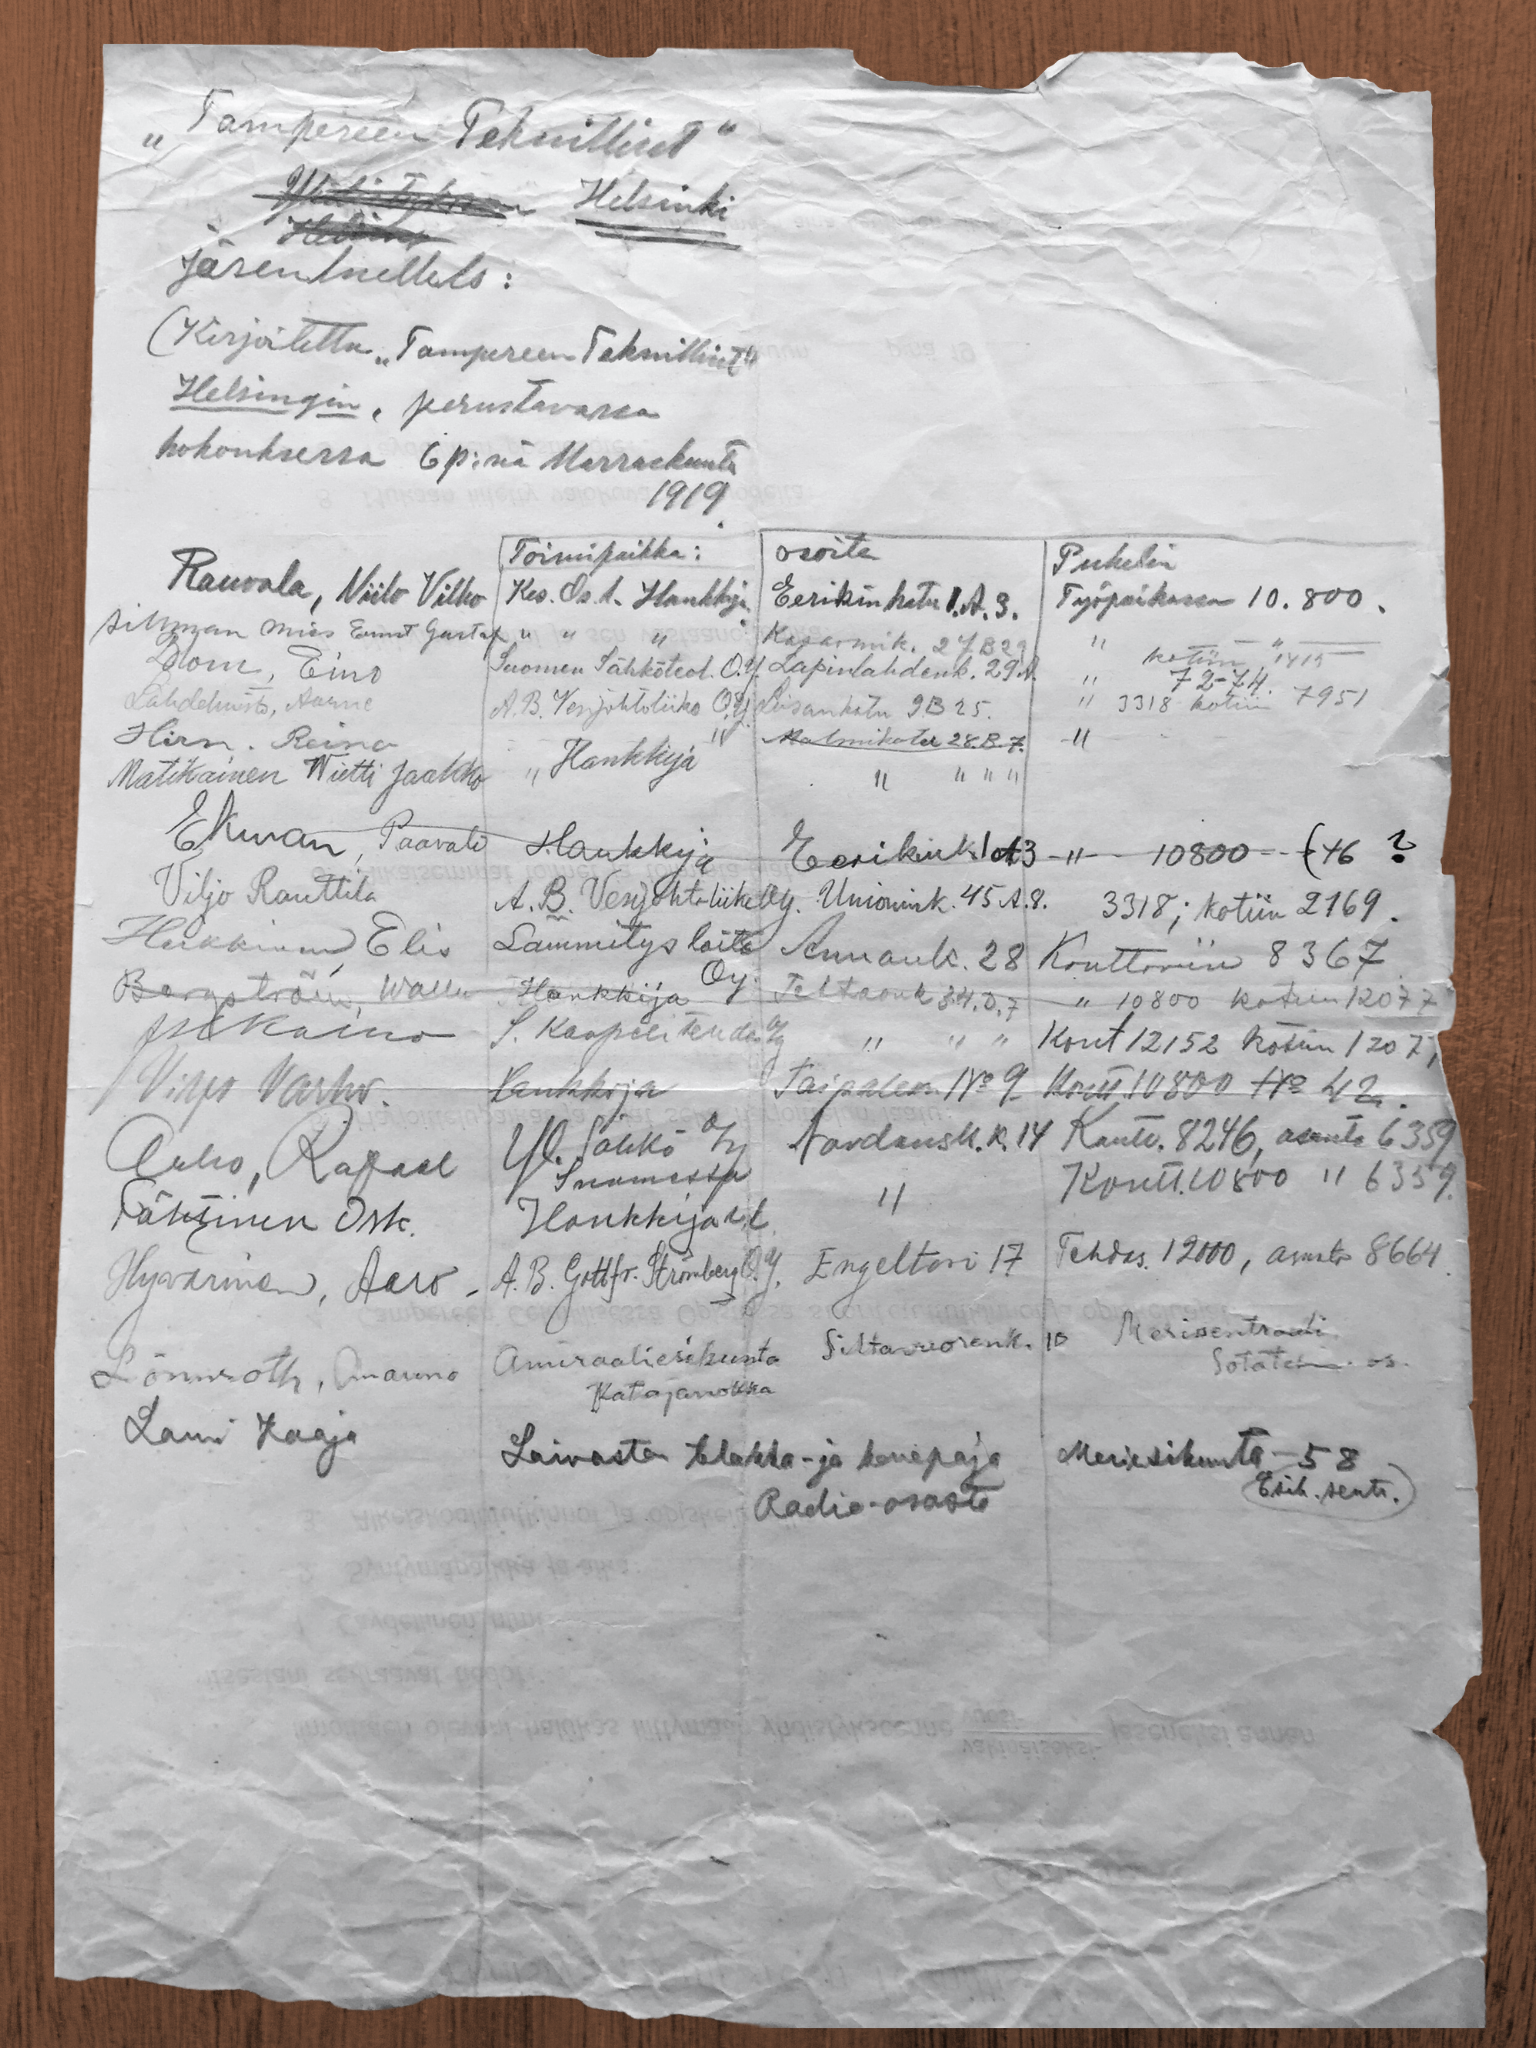 „Tampereen Teknilliset"
Yhdistyksen Helsinki
jäsenluettelo:
(Kirjoitettu „Tampereen Teknilliset"
Helsingin, perustavassa
kokouksessa 6 p:nä Marraskuuta
1919.
Toimipaikka: osoite Puhelin
Rauvala, Niilo Vilho Kes. Os. l. Hankkija Eerikinkatu 1.A.3. Työpaikassa 10.800.
Ernst Gustaf " " " 27 B 29 " — " —
kotiin 1415
Blom, Eino Suomen Sähköteol. O.Y. Lapinlahdenk. 29 A. " 72-74.
Lähdehuisto, Aarne A.B. Vesijohtoliike O.Y. Liisankatu 9 B 25. " 3318 kotiin 7951
Hirn. Reino " Malmikatu 28.B.7. -"
Matikainen Vietti Jaakko „ Hankkija " " " "
Ekman, Paavali Hankkija Eerikink. 1 A 3 -"- 10800 - (46 ?
Viljo Rauttila A.B. Vesijohtoliike Oy. Unionink. 45 A.8. 3318; kotiin 2169.
Heikkinen, Elis Lämmityslaite Oy. Annank. 28 Konttoriin 8367
Bergström, Hankkija 34.D.7 " 10800 kotiin 12077
S. Kaapelitehdas O/y " " " Kont 12152 kotiin 1207,
Viljo Varho. Hankkija Taipaleen No 9 Kontt. 10800 No 42.
Arho, Rafael Yl. Sähkö O/y Nordensk. k. 14 Kontt. 8246, asunto 6359
Suomessa
Tähtinen Osk. Hankkija " Kontt. 10800 " 6359.
Hyvärinen, Aaro - A.B. Gottfr. Strömberg O.Y. Engeltori 17 Tehdas. 12000, asunto 8664.
Lönnroth, Amiraaliesikunta Siltavuorenk. 10 Merisentraali
Katajanokka os.
Lauri Haaja Laivasto telakka- ja konepaja Meriesikunta - 58
Radio-osasto Esik. sentr.)